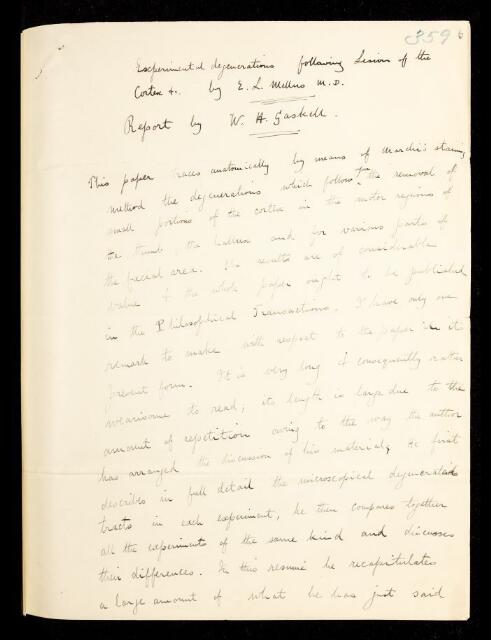 359 6
Experimental degenerations following Lesion of the
Cortex &. by E. L. Mellus M.D.
Report by W. H. Gaskell.
This paper traces anatomically by means of Marchi's staining
method the degenerations which follow the removal of
small portions of the cortex in the motor regions of
the thumb, the hallux and for various parts of
the facial area. The results are of considerable
value & the whole paper ought to be published
in the Philosophical Transactions. I have only one
remark to make with respect to the paper in its
present form. It is very long & consequently rather
wearisome to read; its length is largely due to the
amount of repetition owing to the way the author
has arranged the discussion of his material. He first
describes in full detail the microscopical degenerated
tracts in each experiment, he then compares together
all the experiments of the same kind and discusses
their differences. In this resumé he recapitulates
a large amount of what he has just said